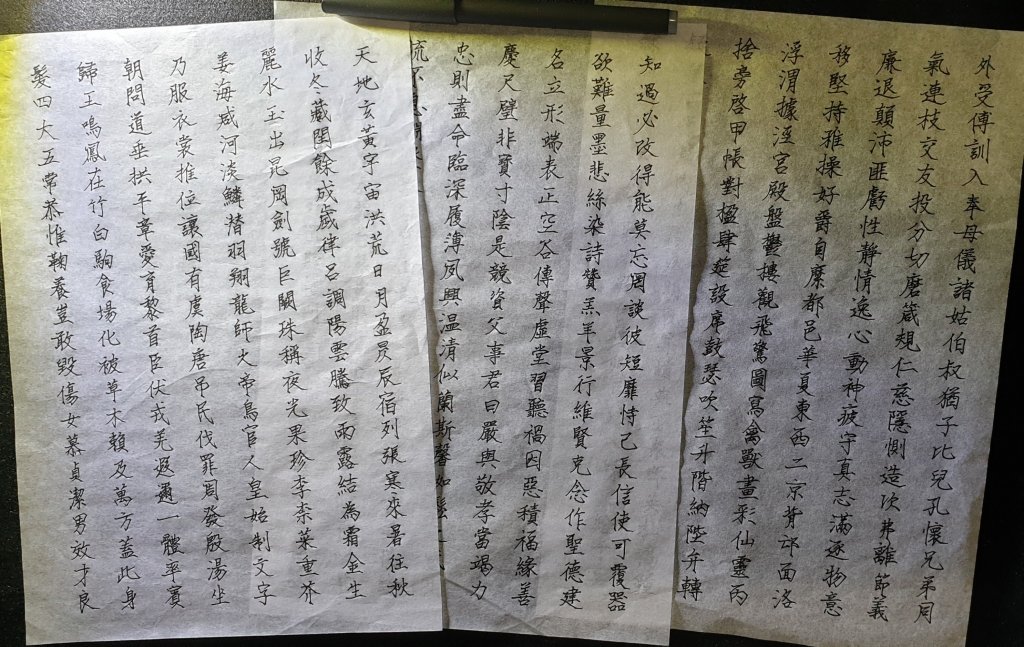 外受傅訓入奉母儀諸姑伯叔猶子比兒孔懷兄弟同
氣連枝交友投分切磨箴規仁慈隱惻造次弗離節義
廉退顛沛匪虧性靜情逸心動神疲守真志滿逐物意
移堅持雅操好爵自縻都邑華夏東西二京背邙面洛
浮渭據涇宮殿盤鬱樓觀飛驚圖寫禽獸畫彩仙靈丙
捨旁啓甲帳對楹肆筵設席鼓瑟吹笙升階納陛弁轉
知過必改得能莫忘罔談彼短靡恃己長信使可覆器
欲難量墨悲絲染詩贊羔羊景行維賢克念作聖德建
名立形端表正空谷傳聲虛堂習聽禍因惡積福緣善
慶尺璧非寶寸陰是競資父事君曰嚴與敬孝當竭力
忠則盡命臨深履薄夙興温清似蘭斯馨如鬆之
流不息
天地玄黃宇宙洪荒日月盈昃辰宿列張寒來暑往秋
收冬藏閏餘成歲律呂調陽雲騰致雨露結為霜金生
麗水玉出昆岡劍號巨闕珠稱夜光果珍李柰菜重芥
姜海咸河淡鱗潛羽翔龍師火帝鳥官人皇始制文字
乃服衣裳推位讓國有虞陶唐吊民伐罪周發殷湯坐
朝問道垂拱平章愛育黎首臣伏戎羌遐邇一體率賓
歸王鳴鳳在竹白駒食場化被草木賴及萬方蓋此身
髮四大五常恭惟鞠養豈敢毀傷女慕貞潔男效才良